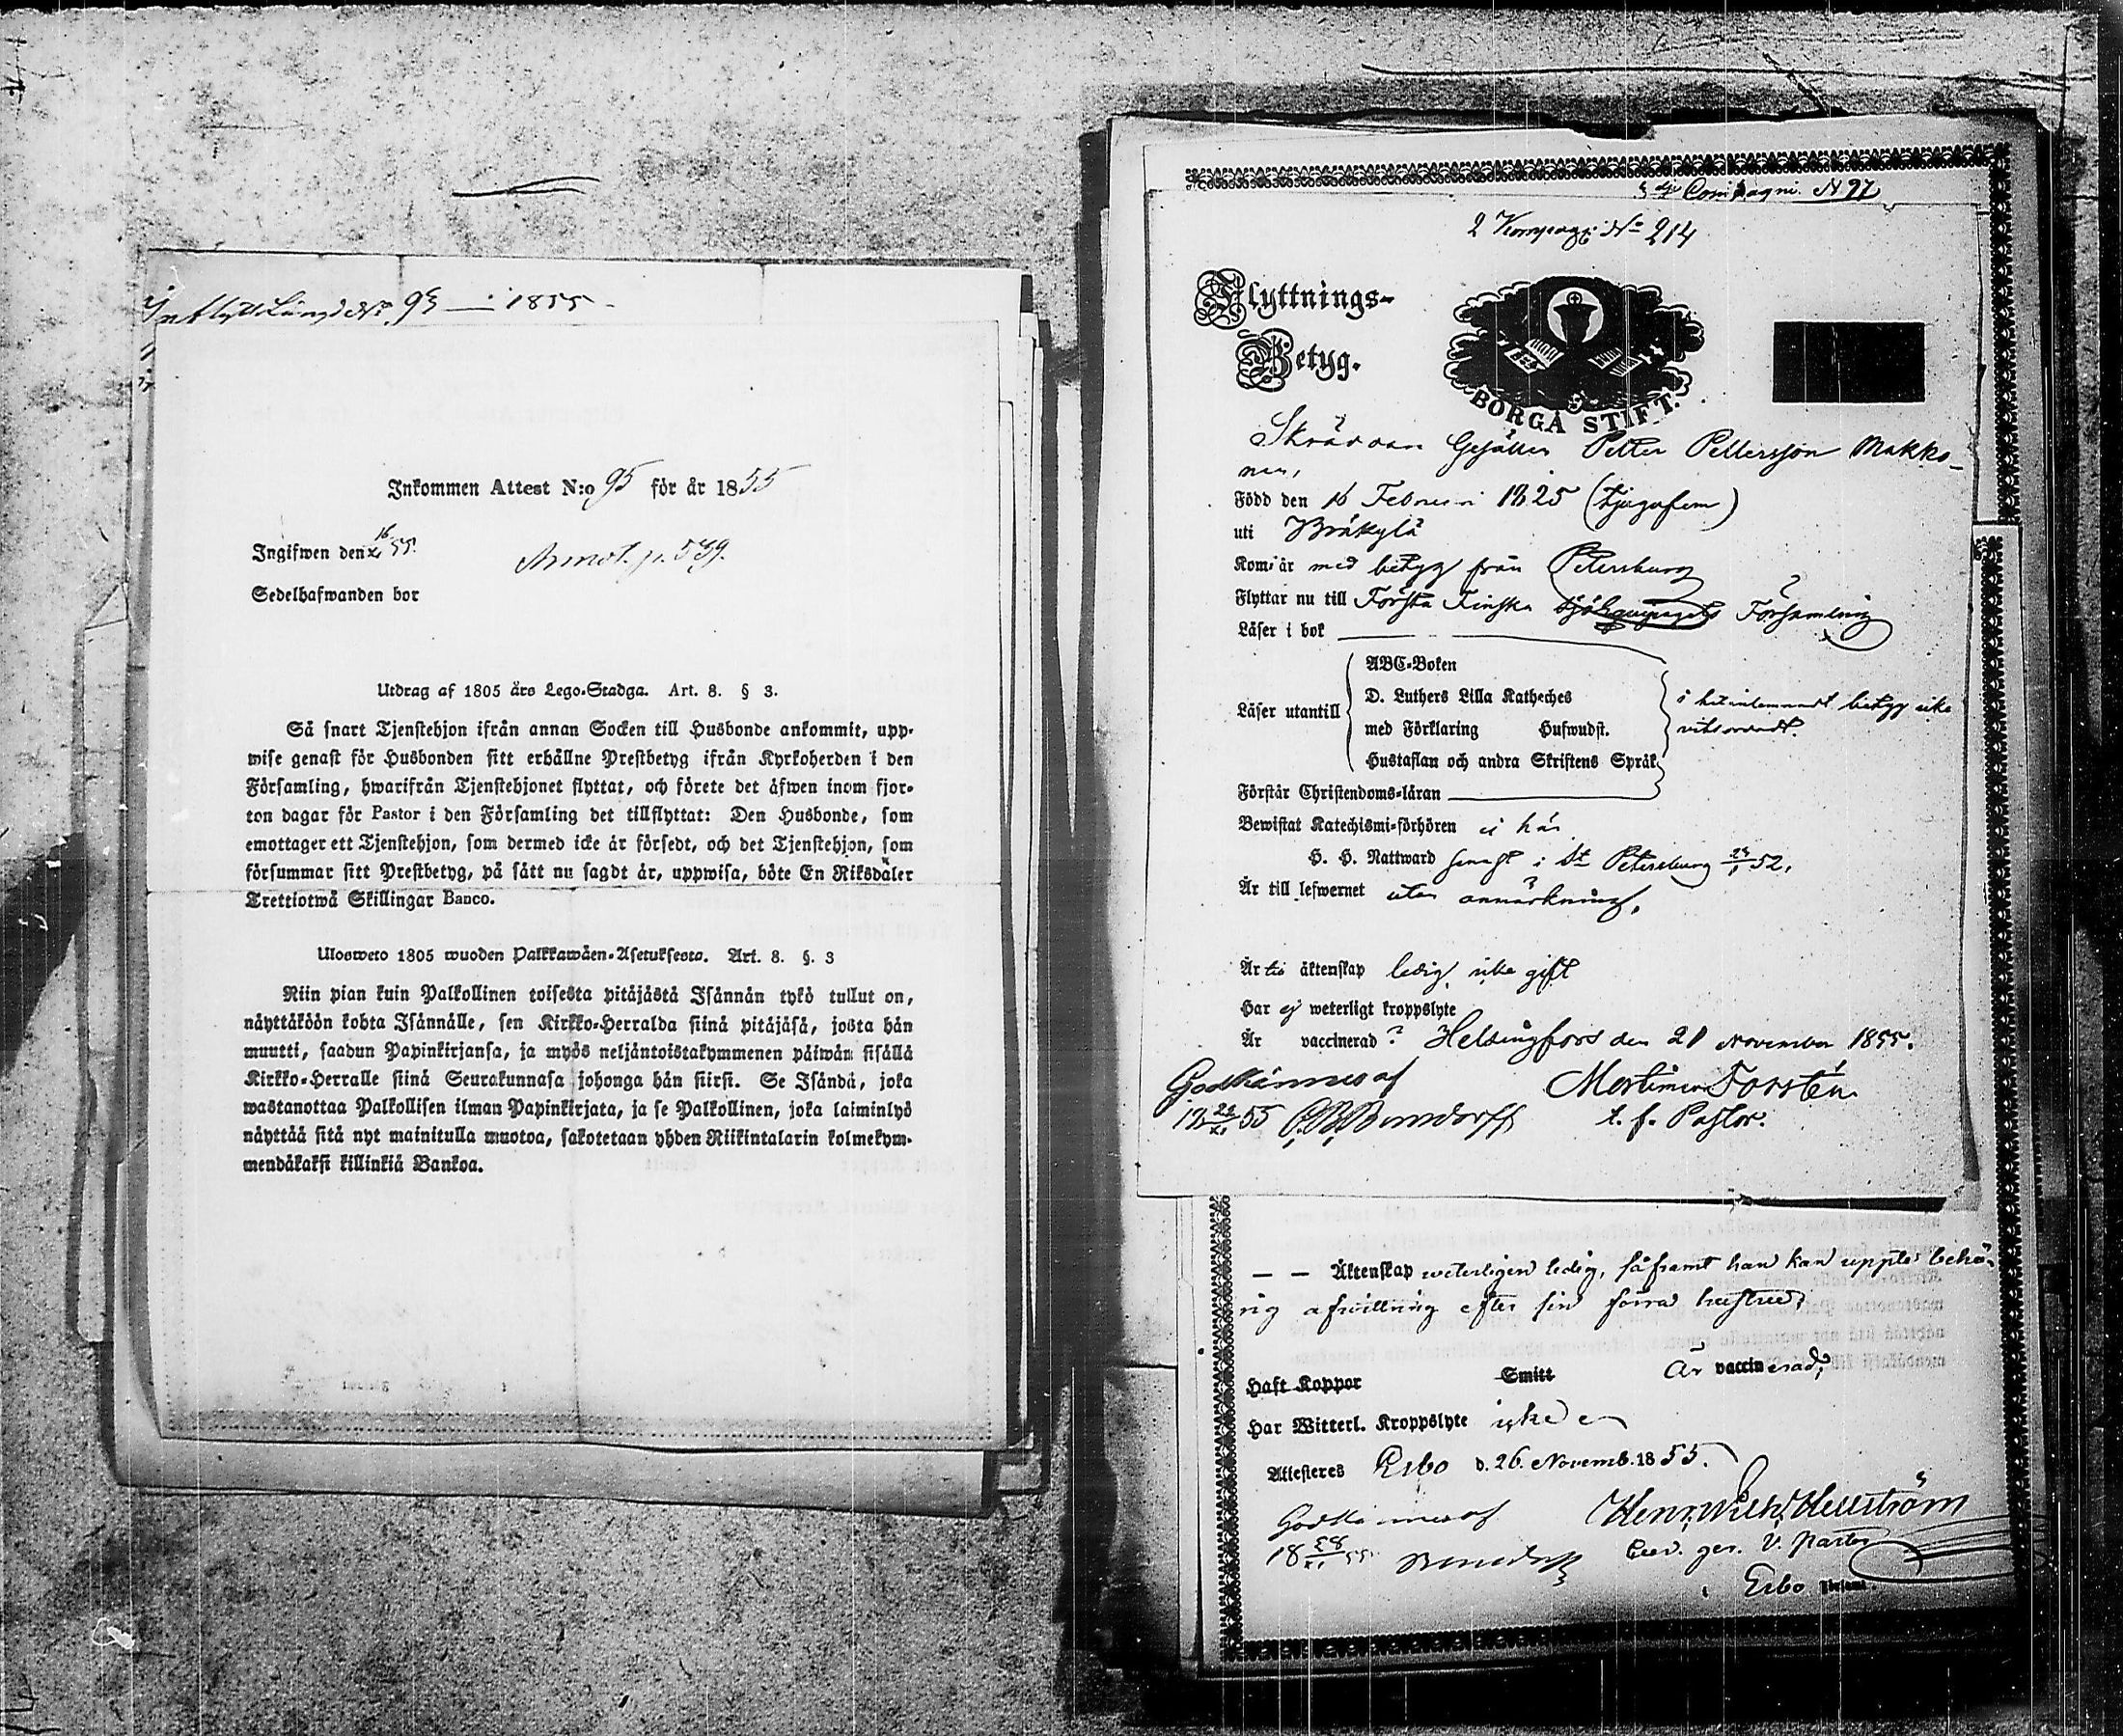 Inflytt Längd No 93 — 1855
Inkommen Attest N:o 95 för år 1855
Ingifwen den 16/XI 55.
Annot. p. 539.
Sedelhafwanden bor
Utdrag af 1805 års Lego-Stadga. Art. 8. § 3.
Så snart Tjenstehjon ifrån annan Socken till Husbonde ankommit, upp-
wise genast för Husbonden sitt erhållne Prestbetyg ifrån Kyrkoherden i den
Församling, hwarifrån Tjenstehjonet flyttat, och förete det äfwen inom fjor-
ton dagar för Pastor i den Församling det tillflyttat: Den Husbonde, som
emottager ett Tjenstehjon, som dermed icke är försedt, och det Tjenstehjon, som
försummar sitt Prestbetyg, på sätt nu sagdt är, uppwisa, böte En Riksdaler
Trettiotwå Skillingar Banco.
Ulosweto 1805 wuoden Palkkawäen-Asetuksesta. Art. 8. §. 3
Niin pian kuin Palkollinen toisesta pitäjästä Isännän tykö tullut on,
näyttäköön kohta Isännälle, sen Kirkko-Herralda siinä pitäjäsä, josta hän
muutti, saadun Papinkirjansa, ja myös neljäntoistakymmenen päiwän sisällä
Kirkko-Herralle siinä Seurakunnasa johonga hän siirsi. Se Isändä, joka
wastanottaa Palkollisen ilman Papinkirjata, ja se Palkollinen, joka laiminlyö
näyttää sitä nyt mainitulla muotoa, sakotetaan yhden Riikintalarin kolmekym-
mendäkaksi killinkiä Bankoa.
Compagni. N 97
2 Kompagi No 214
Flyttnings-
Betyg.
BORGÅ STIFT.
Skräddare Gesällen Petter Pettersson Makko-
nen,
Född den 16 Februarii 1825 (tjugufem)
uti Bräkylä
Kom: är med betyg från Petersburg
Flyttar nu till Första Finska Sjöequipagets Församling
Läser i bok
Läser utantill
ABC-Boken
D. Luthers Lilla Katheches
med Förklaring Hufwudst.
Hustaflan och andra Skriftens Språk
i hit inlemnadt betyg icke
vitsordadt.
Förstår Christendoms-läran
Bewistat Katechismi-förhören ej här
H. H. Nattward senast i St Petersburg 52.
Är till lefwernet utan anmärkning,
Är till äktenskap ledig, icke gift
Har ej weterligt kroppslyte
Är vaccinerad? Helsingfors den 21 November 1855.
Godkännes af
Mortimer Forstén
t. f. Pastor.
— — Äktenskap weterligen ledig, såframt han kan uppte behö-
rig afwittring efter sin förra hustru,
Haft Koppor Smitt Är vaccinerad,
Har Witterl. Kroppslyte icke
Attesteres Esbo d. 26. Novemb. 1855.
Godkännes af
Henr. Wilh. Hellström
V. Pastor
i Esbo Församl.